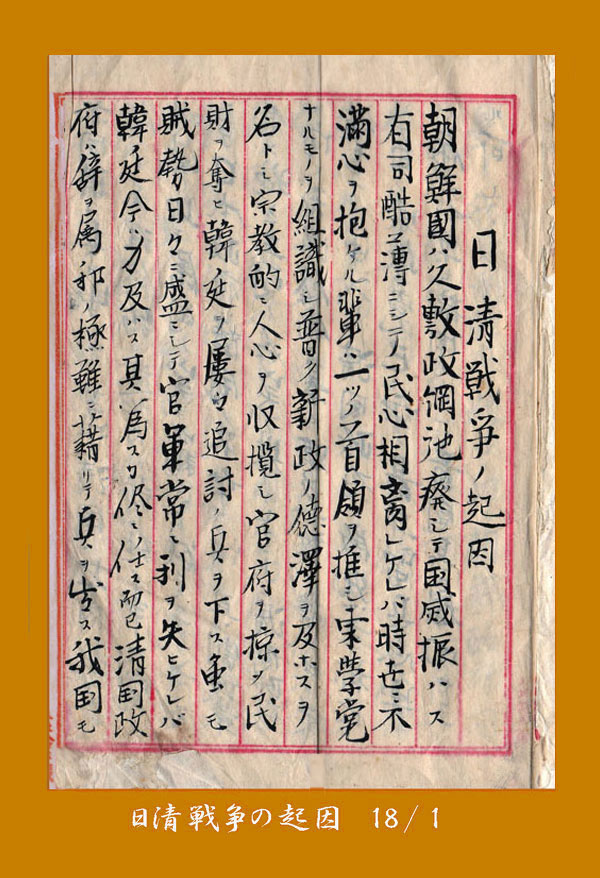 日清戦争ノ起因
朝鮮國ハ久敷政綱弛廃シテ国威振ハス
有司酷薄ニシテ民心相離レケレバ時世ニ不
満心ヲ抱ケル輩ハ一ツノ首領ヲ推シ東學党
ナルモノヲ組識シ普ク新政ノ徳澤ヲ及ホスヲ
名トシ宗教的ニ人心ヲ収攬シ官府ヲ掠メ民
財ヲ奪ヒ韓ノ廷ヲ屢追討ノ兵ヲ下ス虽モ
賊勢日々ニ盛ニシテ官軍常ニ利ヲ失ヒケレバ
韓廷今ハ力及ハス其為スカ侭ニ任ス而已清国政
府ハ辞ヲ属邦ノ極難ニ藉リテ兵ヲ出ス我国モ
日清戦争の起因 18/1